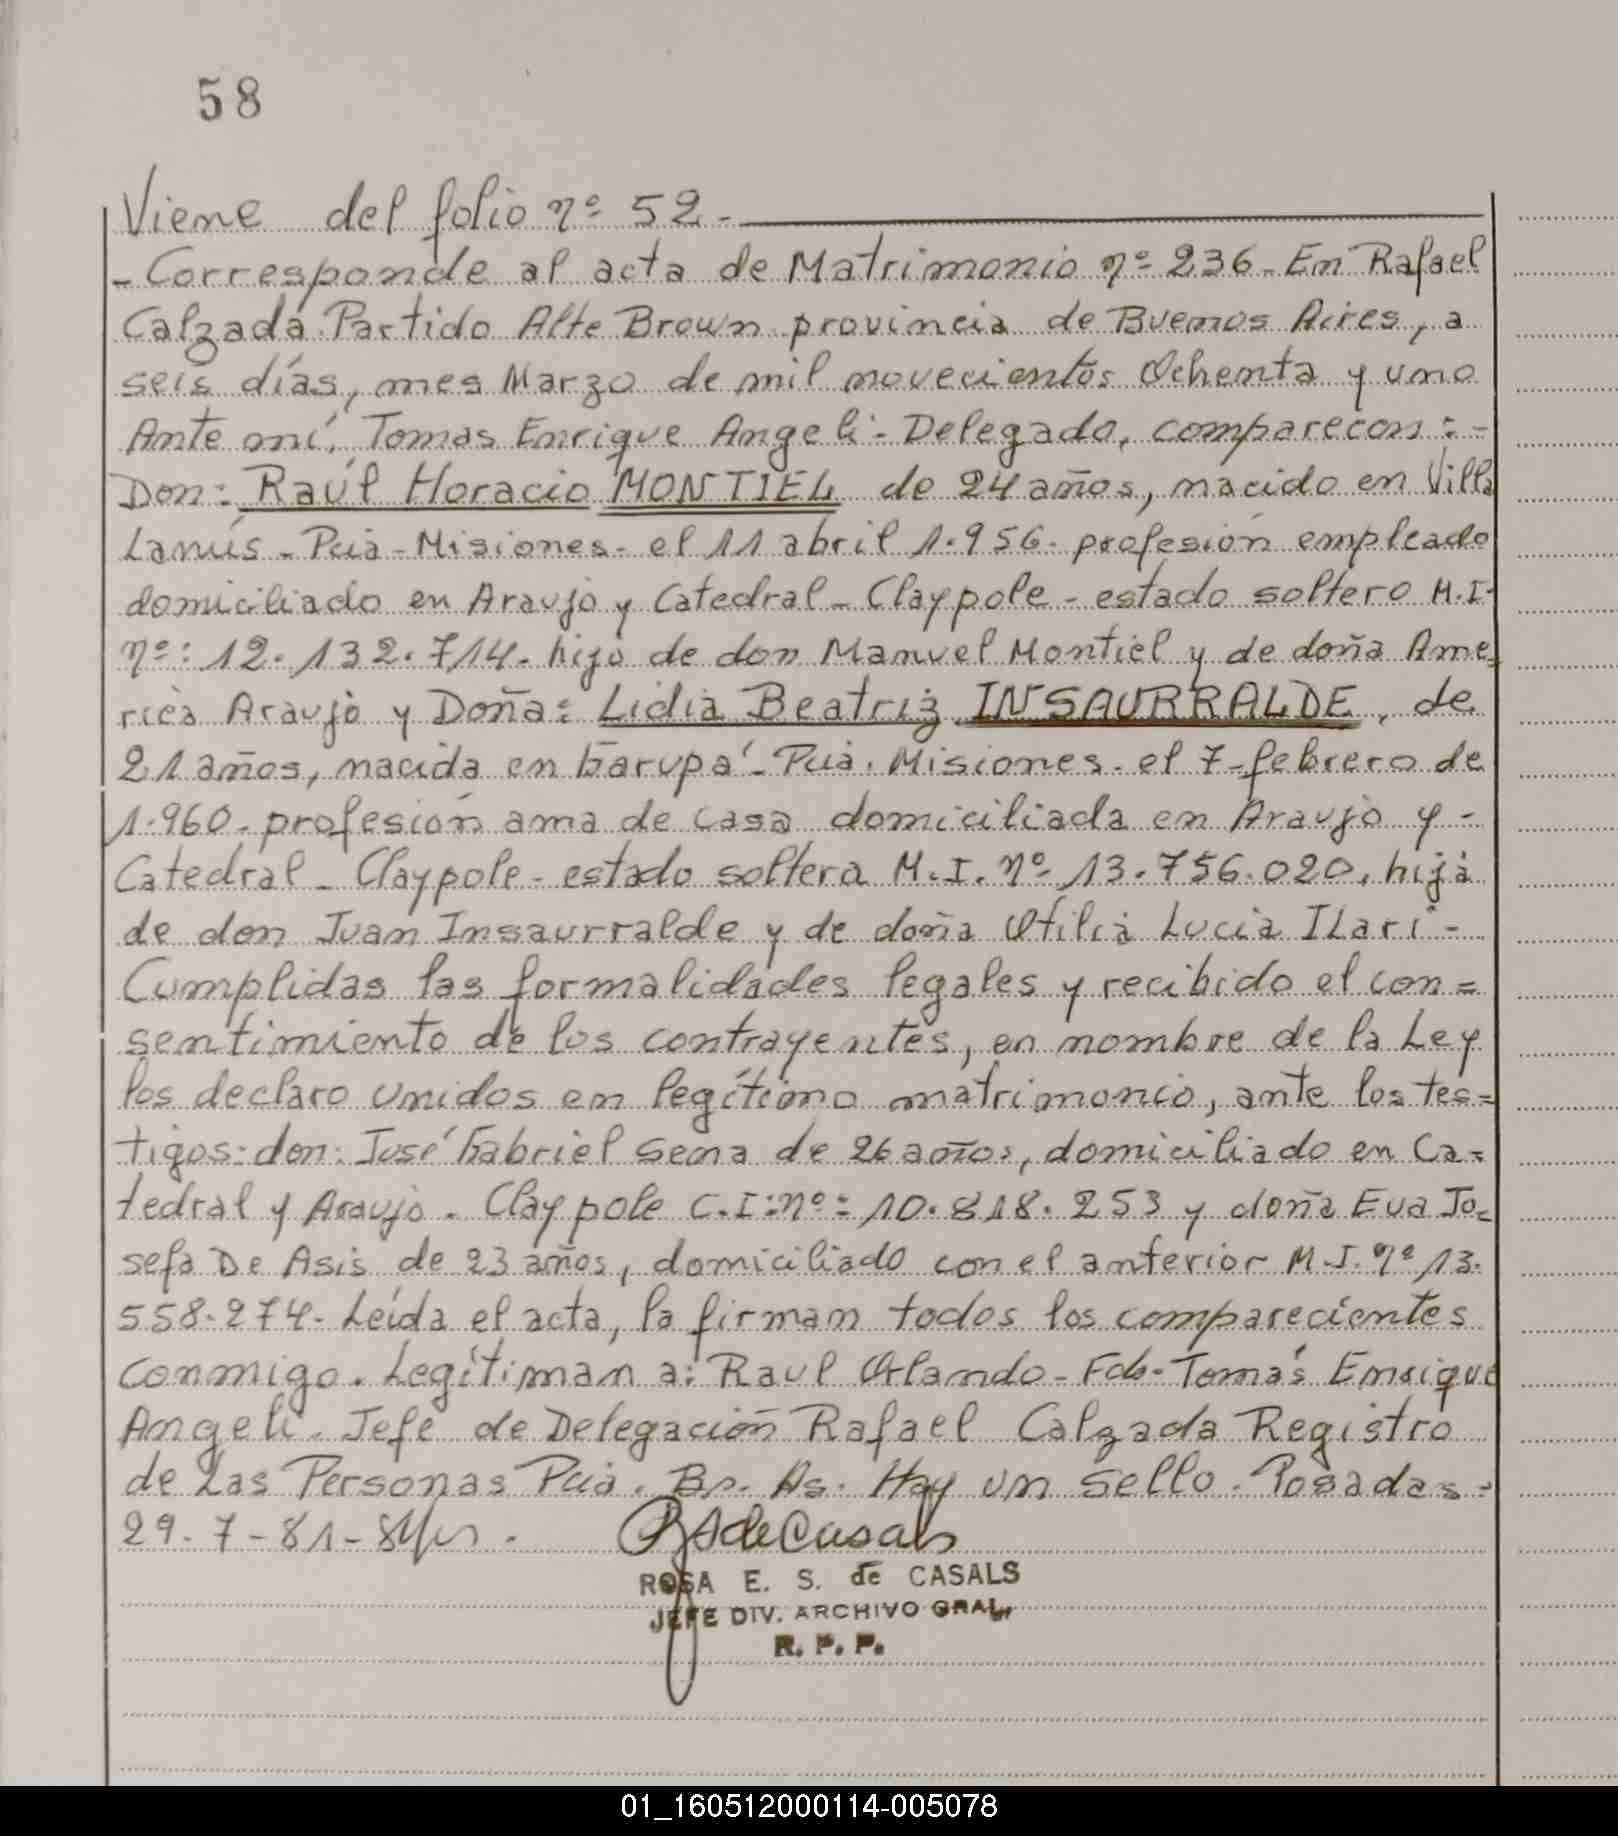 58
Viene del folio nº 52.-
- Corresponde al acta de Matrimonio nº 236. En Rafael
Calzada Partido Alte Brown provincia de Buenos Aires, a
seis días, mes Marzo de mil novecientos Ochenta y uno
Ante mí, Tomas Enrique Angeli - Delegado, comparecen: -
Don: Raúl Horacio MONTIEL de 24 años, nacido en Villa
Lanús - Pcia - Misiones - el 11 abril 1.956. profesión empleado
domiciliado en Araujo y Catedral - Claypole - estado soltero M.I.
nº: 12.132.714. hijo de don Manuel Montiel y de doña Ame=
rica Araujo y Doña: Lidia Beatriz INSAURRALDE, de
21 años, nacida en Garupá - Pcia. Misiones - el 7 - febrero de
1.960 - profesión ama de casa domiciliada en Araujo y -
Catedral - Claypole - estado soltera M.I. nº 13.756.020, hija
de don Juan Insaurralde y de doña Otilia Lucia ILari -
Cumplidas las formalidades legales y recibido el con=
sentimiento de los contrayentes, en nombre de la Ley
los declaro unidos en legítimo matrimonio, ante los tes=
tigos: don: José Gabriel Sena de 26 años, domiciliado en Ca=
tedral y Araujo. Claypole C.I: nº: 10.818.253 y doña Eva Jo=
sefa De Asis de 23 años, domiciliado con el anterior M.I. nº 13.
558.274. Leída el acta, la firman todos los comparecientes
conmigo. Legítiman a: Raul Orlando - Fdo - Tomás Enrique
Angeli. Jefe de Delegación Rafael Calzada Registro
de Las Personas Pcia. Bs. As. Hay un sello. Posadas -
29 - 7 - 81 -
RSdeCasals
ROSA E. S. de CASALS
JEFE DIV. ARCHIVO GRAL.
R. P. P.
01_160512000114-005078